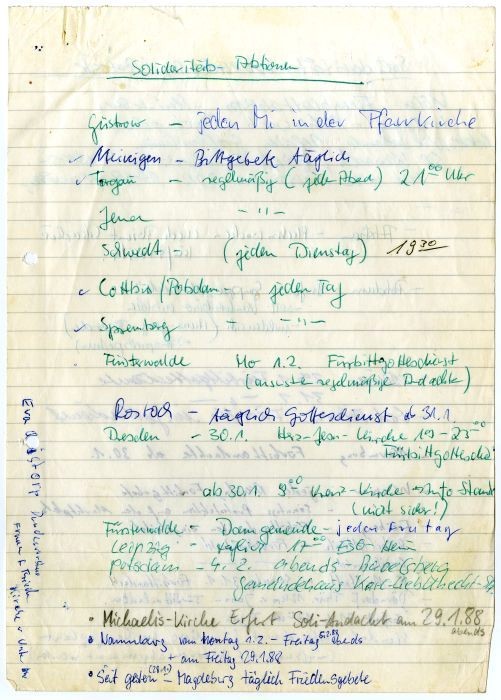 Solidaritäts-Aktionen
Güstrow – jeden Mi in der Pfarrkirche
Meinigen – Bittgebete täglich
Torgau – regelmäßig (jede Abed) 21⁰⁰ Uhr
Jena – " –
Schwedt – (jeden Dienstag) 19³⁰
Cottbus/Potsdam – jeden Tag
Spremberg – – " –
Finsterwalde Mo 1.2. Fürbittgottesdienst
(ansonsten regelmäßige Andachte)
Rostock – täglich Gottesdienst ab 31.1
Dresden – 30.1. Herz-Jesu-Kirche 19³ – 23⁰⁰
Fürbittgottesdie
ab 30.1. 9⁰⁰ Kreuz-Kirche → Info Stand
(nicht sicher!)
Fürstenwalde – Domgemeinde – jeden Freitag
Leipzig – täglich 17⁰⁰ ESG-Heim
Potsdam – 4.2. abends – Babelsberg
Gemeindehaus Karl-Liebknecht-S
• Michaelis-Kirche Erfurt Soli-Andacht am 29.1.88
abends
• Naumburg von Montag 1.2. – Freitag 5.2.88 abends
+ am Freitag 29.1.88
• Seit gestern (28.1.) – Magdeburg täglich Friedensgebete
Eva Quistorp
Frauen f. Frieden
Kirche v. Unte